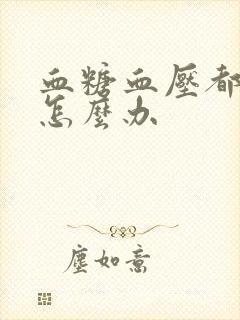 血糖血壓都
怎麼办
塵如意